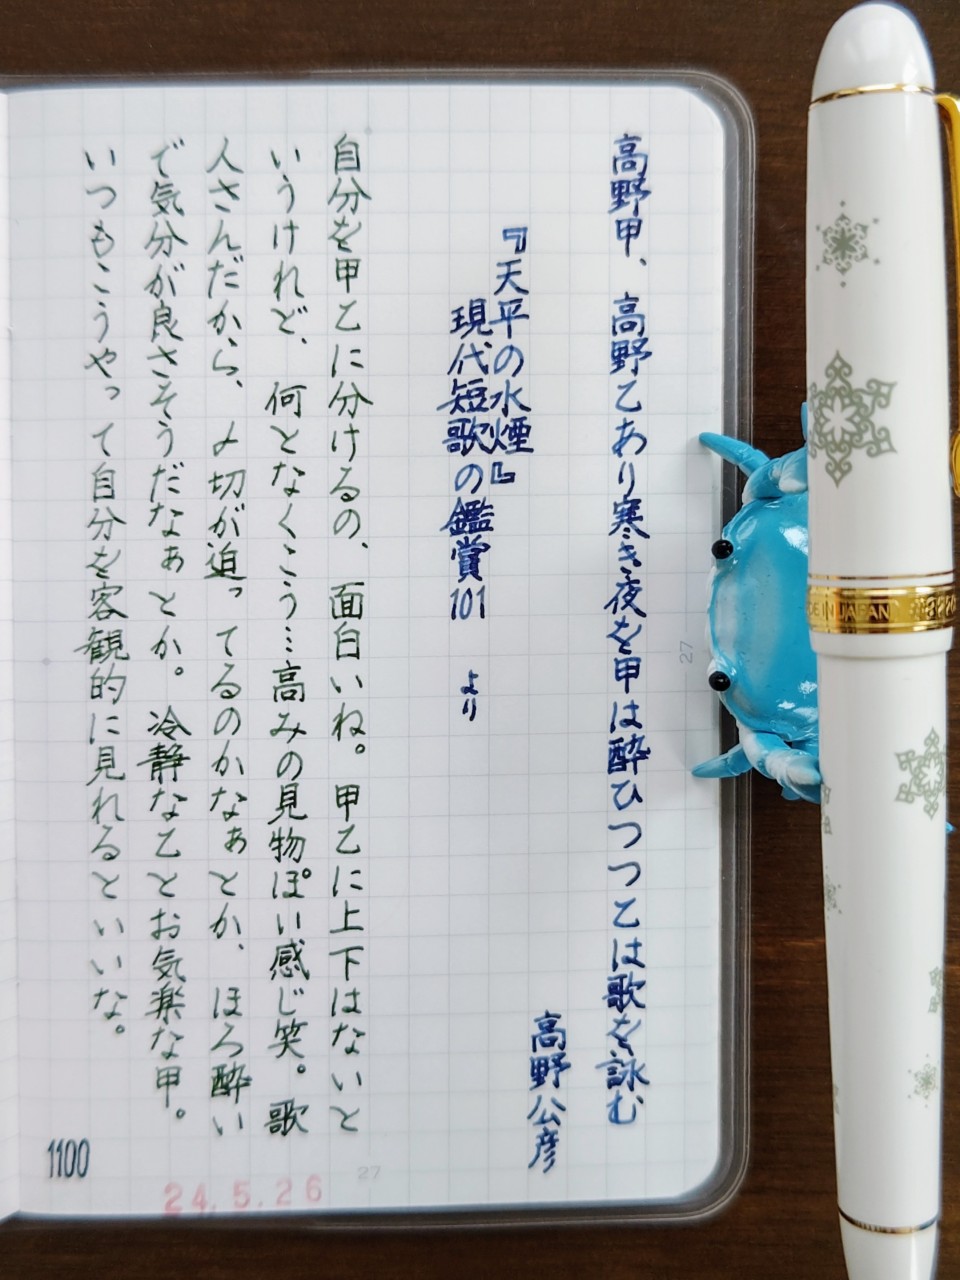 高野甲、高野乙あり寒き夜を甲は酔ひつつ乙は歌を詠む
高野公彦
『天平の水煙』
現代短歌の鑑賞101 より
自分を甲乙に分けるの、面白いね。甲乙に上下はないと
いうけれど、何となくこう…高みの見物ぽい感じ笑。歌
人さんだから、〆切が迫ってるのかなぁとか、ほろ酔い
で気分が良さそうだなぁとか。冷静な乙とお気楽な甲。
いつもこうやって自分を客観的に見れるといいな。
1100
24.5.26
27
27
DE IN JAPAN